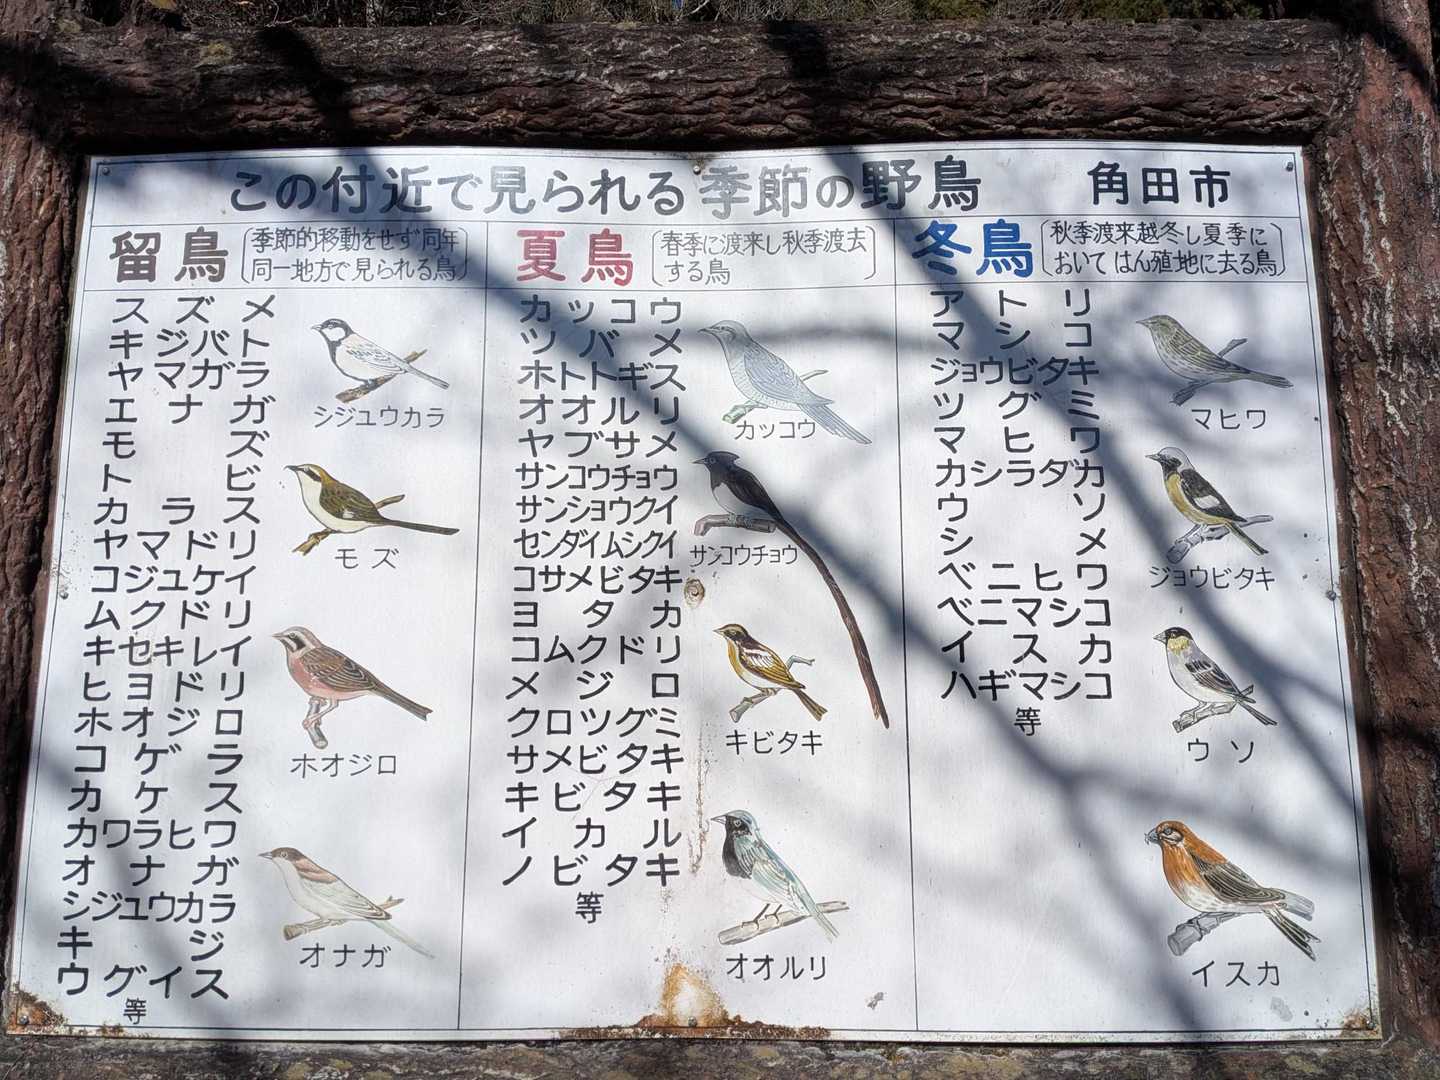 この付近で見られる季節の野鳥 角田市
留鳥 季節的移動をせず同年
同一地方で見られる鳥
スズメ
キジバト
ヤマガラ
エナガ
モズ
トビ
カラス
ヤマドリ
コジュケイ
ムクドリ
キセキレイ
ヒヨドリ
ホオジロ
コゲラ
カケス
カワラヒワ
オナガ
シジュウカラ
キジ
ウグイス
等
シジュウカラ
モズ
ホオジロ
オナガ
夏鳥 春季に渡来し秋季渡去
する鳥
カッコウ
ツバメ
ホトトギス
オオルリ
ヤブサメ
サンコウチョウ
サンショウクイ
センダイムシクイ
コサメビタキ
ヨタカ
コムクドリ
メジロ
クロツグミ
サメビタキ
キビタキ
イカル
ノビタキ
等
カッコウ
サンコウチョウ
キビタキ
オオルリ
冬鳥 秋季渡来越冬し夏季に
おいてはん殖地に去る鳥
アトリ
マシコ
ジョウビタキ
ツグミ
マヒワ
カシラダカ
ウソ
シメ
ベニヒワ
ベニマシコ
イスカ
ハギマシコ
等
マヒワ
ジョウビタキ
ウソ
イスカ